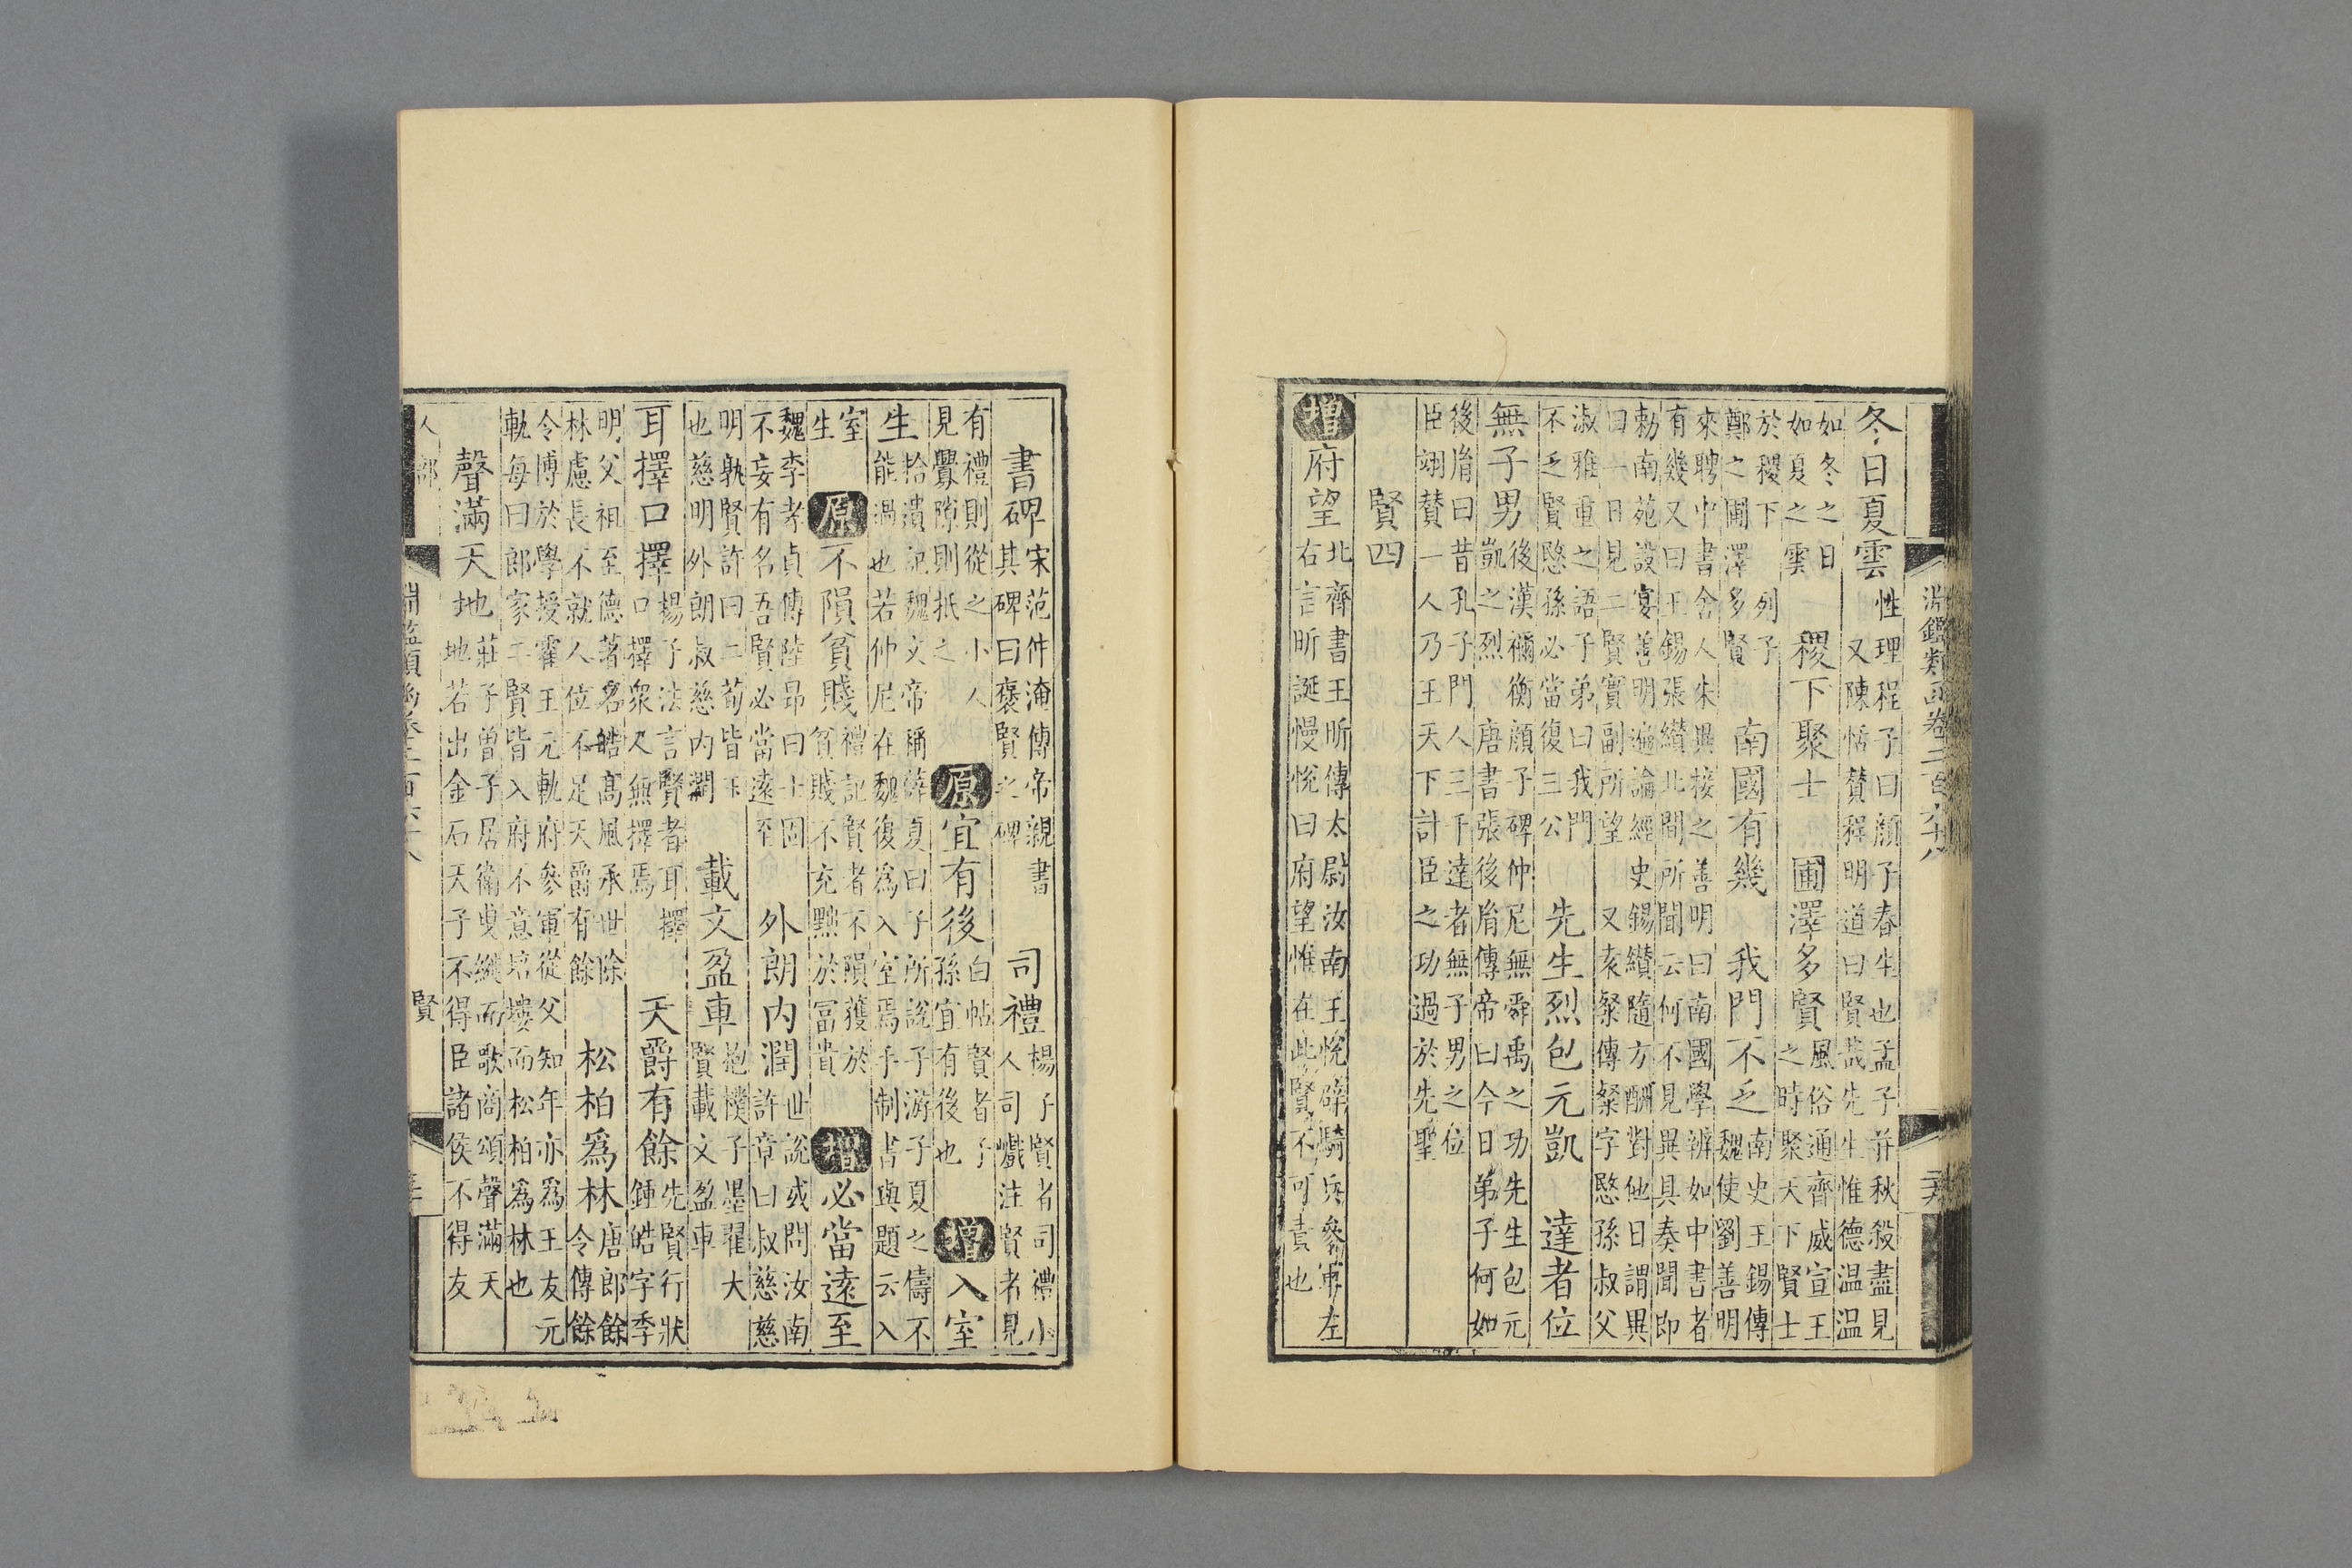 淵鑑類函卷二百六十八 二十六
冬日夏雲 性理程子曰顏子春生也孟子并秋殺盡見
又陳恬贊程明道曰賢哉先生惟德温温
如冬之日
如夏之雲 稷下聚士 圃澤多賢 風俗通齊威宣王
之時聚天下賢士
於稷下 列子
鄭之圃澤多賢 南國有幾 我門不乏 南史王錫傳
魏使劉善明
來聘中書舍人朱異接之善明曰南國學辨如中書者
有幾又曰王錫張纉北間所聞云何不見異具奏聞即
勅南苑設宴善明遍論經史錫纉隨方酬對他日謂異
曰一日見二賢實副所望 又袁粲傳粲字愍孫叔父
淑雅重之語子弟曰我門
不乏賢愍孫必當復三公 先生烈包元凱 達者位
無子男 後漢禰衡顔子碑仲尼無舜禹之功先生包元
凱之烈 唐書張後胤傳帝曰今日弟子何如
後胤曰昔孔子門人三千達者無子男之位
臣翊贊一人乃王天下計臣之功過於先聖
賢四
增 府望 北齊書王昕傳太尉汝南王悅辟騎兵參軍左
右言昕誕慢悅曰府望惟在此賢不可責也
書碑 宋范仲淹傳帝親書
其碑曰褒賢之碑 司禮 楊子賢者司禮小
人司巇注賢者見
有禮則從之小人
見釁隙則抵之 原 宜有後 白帖賢者子
孫宜有後也 增 入室
生 拾遺記魏文帝稱薛夏曰子所說子游子夏之儔不
能過也若仲尼在魏復為入室焉手制書與題云入
室
生 原 不隕貧賤 禮記賢者不隕獲於
貧賤不充黜於富貴 增 必當遠至
魏李孝貞傳陸昂曰士固
不妄有名吾賢必當遠至 外朗内潤 世說或問汝南
許章曰叔慈慈
明孰賢許曰二荀皆玉
也慈明外朗叔慈内潤 載文盈車 抱樸子墨翟大
賢載文盈車
耳擇口擇 楊子法言賢者耳擇
口擇衆人無擇焉 天爵有餘 先賢行狀
鍾皓字季
明父祖至德著名皓高風承世除
林慮長不就人位不足天爵有餘 松柏爲林 唐郎餘
令傳餘
令博於學授霍王元軌府參軍從父知年亦爲王友元
軌每曰郎家二賢皆入府不意培塿而松柏爲林也
聲滿天地 莊子曾子居衛曳縰而歌商頌聲滿天
地若出金石天子不得臣諸侯不得友
人部 淵鑑類函卷二百六十八 賢